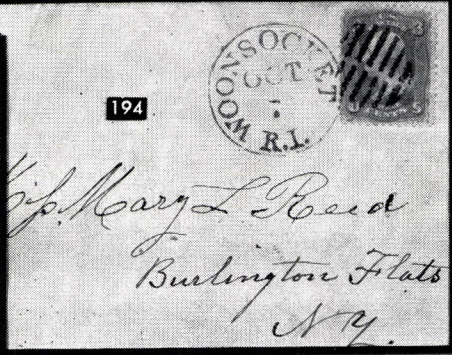 WOONSOCKET
OCT
7
R.I.
194
Miss Mary L Reed
Burlington Flats
N Y.